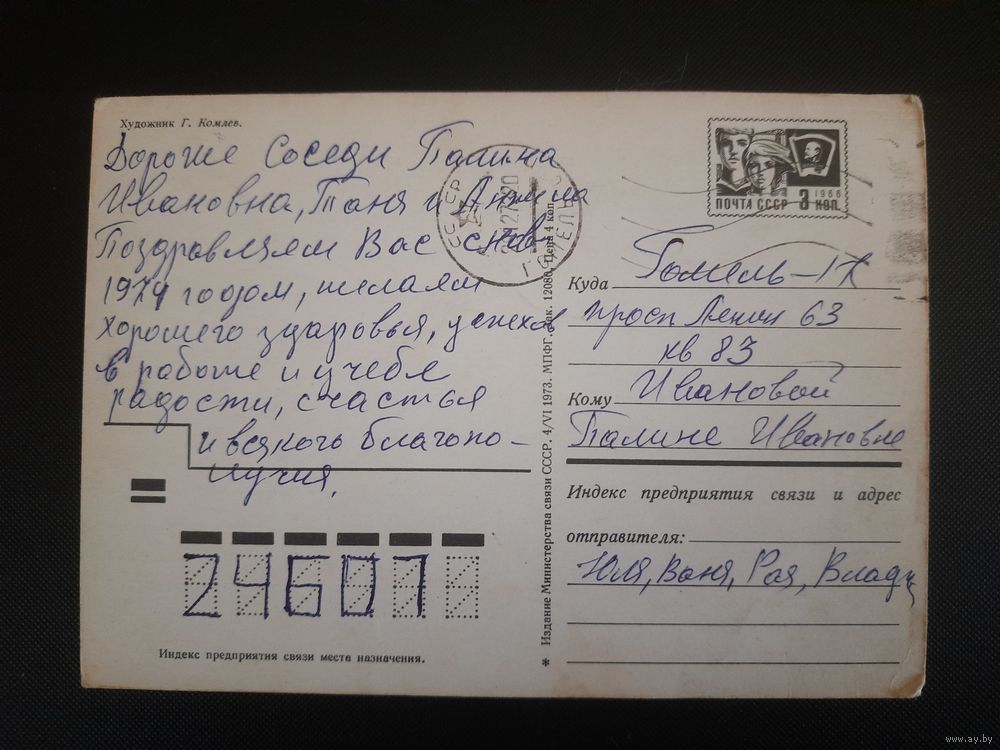 Художник Г. Комлев.
Дорогие Соседи Палина
Ивановна, Таня и Анжела
Поздравляем Вас с нов.
1974 годом, желаем
хорошего здоровья, успехов
в работе и учебе
радости, счастья
и всякого благопо-
лучия.
24607
Индекс предприятия связи места назначения.
* Издание Министерства связи СССР. 4/VI 1973. МПФГ. Зак. 12086. Цена 4 коп.
СССР
ГОМЕЛЬ
1966
ПОЧТА СССР 3 КОП.
Куда Гомель-17
просп Ленин 63
кв 83
Кому Ивановой
Палине Ивановне
Индекс предприятия связи и адрес
отправителя:
Юля, Ваня, Рая, Влади
www.ay.by